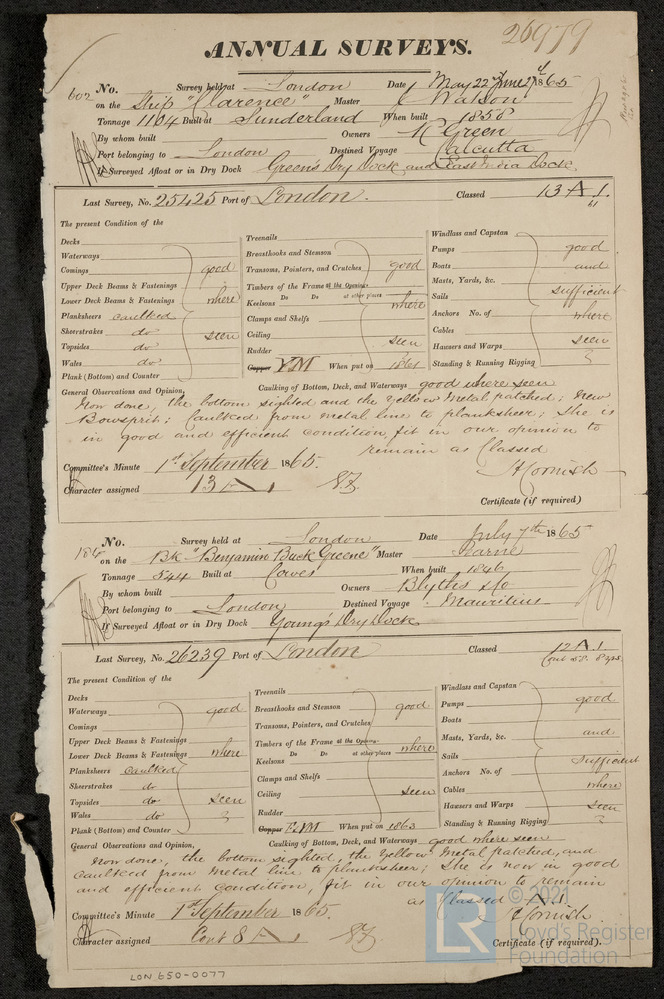 ANNUAL SURVEYS. 26979
602 No. Survey held at London Date May 22 & June 27th 1865
on the Ship "Clarence" Master Watson
Tonnage 1104 Built at Sunderland When built 1858
By whom built Owners R Green
Port belonging to London Destined Voyage Calcutta
If Surveyed Afloat or in Dry Dock Green's Dry Dock and East India Dock
Last Survey, No. 25425 Port of London. Classed 13 A 1.
61
The present Condition of the
Decks
Waterways
Comings good
Upper Deck Beams & Fastenings
Lower Deck Beams & Fastenings where
Planksheers caulked
Sheerstrakes do seen
Topsides do
Wales do
Plank (Bottom) and Counter
Treenails
Breasthooks and Stemson
Transoms, Pointers, and Crutches good
Timbers of the Frame at the Openings
Do Do at other places where
Keelsons
Clamps and Shelfs
Ceiling seen
Rudder
Copper YM When put on 1861
Windlass and Capstan
Pumps good
Boats and
Masts, Yards, &c. sufficient
Sails
Anchors No. of where
Cables
Hawsers and Warps seen
Standing & Running Rigging
Caulking of Bottom, Deck, and Waterways good where seen
General Observations and Opinion,
Now done, the bottom sighted and the Yellow Metal patched; New
Bowsprit; Caulked from metal line to planksheer; She is
in good and efficient condition, fit in our opinion to
remain as Classed
Committee's Minute 1st September 1865. H Cornish
Character assigned 13 A 1
Certificate (if required)
No. Survey held at London Date July 7th 1865
on the Bk "Benjamin Buck Greene" Master
Tonnage 544 Built at Cowes When built 1846
By whom built Owners Blyths & Co
Port belonging to London Destined Voyage Mauritius
If Surveyed Afloat or in Dry Dock Young's Dry Dock
Last Survey, No. 26239 Port of London Classed 12 A 1.
Cont 58. 8 yrs
The present Condition of the
Decks
Waterways good
Comings
Upper Deck Beams & Fastenings
Lower Deck Beams & Fastenings where
Planksheers caulked
Sheerstrakes do
Topsides do seen
Wales do
Plank (Bottom) and Counter
Treenails
Breasthooks and Stemson good
Transoms, Pointers, and Crutches
Timbers of the Frame at the Openings
Do Do at other places where
Keelsons
Clamps and Shelfs
Ceiling seen
Rudder
Copper YM When put on 1863
Windlass and Capstan
Pumps good
Boats
Masts, Yards, &c. and
Sails sufficient
Anchors No. of
Cables where
Hawsers and Warps seen
Standing & Running Rigging
Caulking of Bottom, Deck, and Waterways good where seen
General Observations and Opinion,
Now done, the bottom sighted, the Yellow Metal patched, and
caulked from metal line to planksheer; She is now in good
and efficient condition, fit in our opinion to remain
as Classed A1.
Committee's Minute 1st September 1865. H Cornish
Character assigned Cont 8 A 1
Certificate (if required).
LON 650-0077
LR © 2021
Lloyd's Register
Foundation